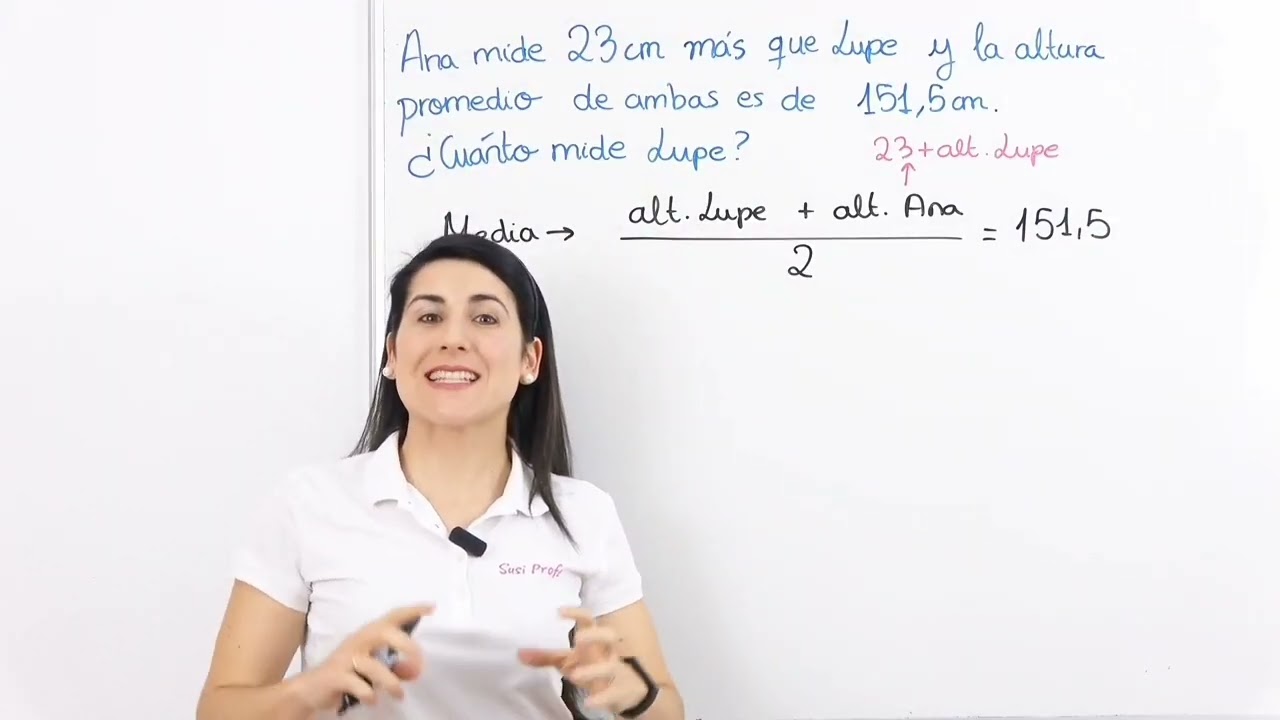 Ana mide 23 cm más que Lupe y la altura
promedio de ambas es de 151,5 cm.
¿Cuánto mide Lupe?
23 + alt. Lupe
↑
alt. Lupe + alt. Ana
Media → = 151,5
2
Susi Profe